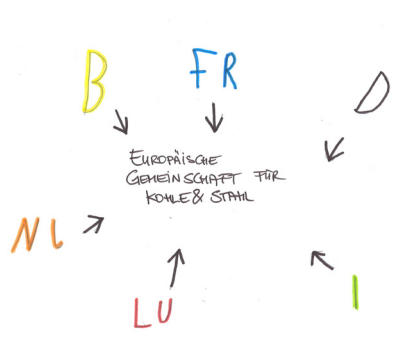 B FR D
EUROPÄISCHE
GEMEINSCHAFT FÜR
KOHLE & STAHL
NL
LU I